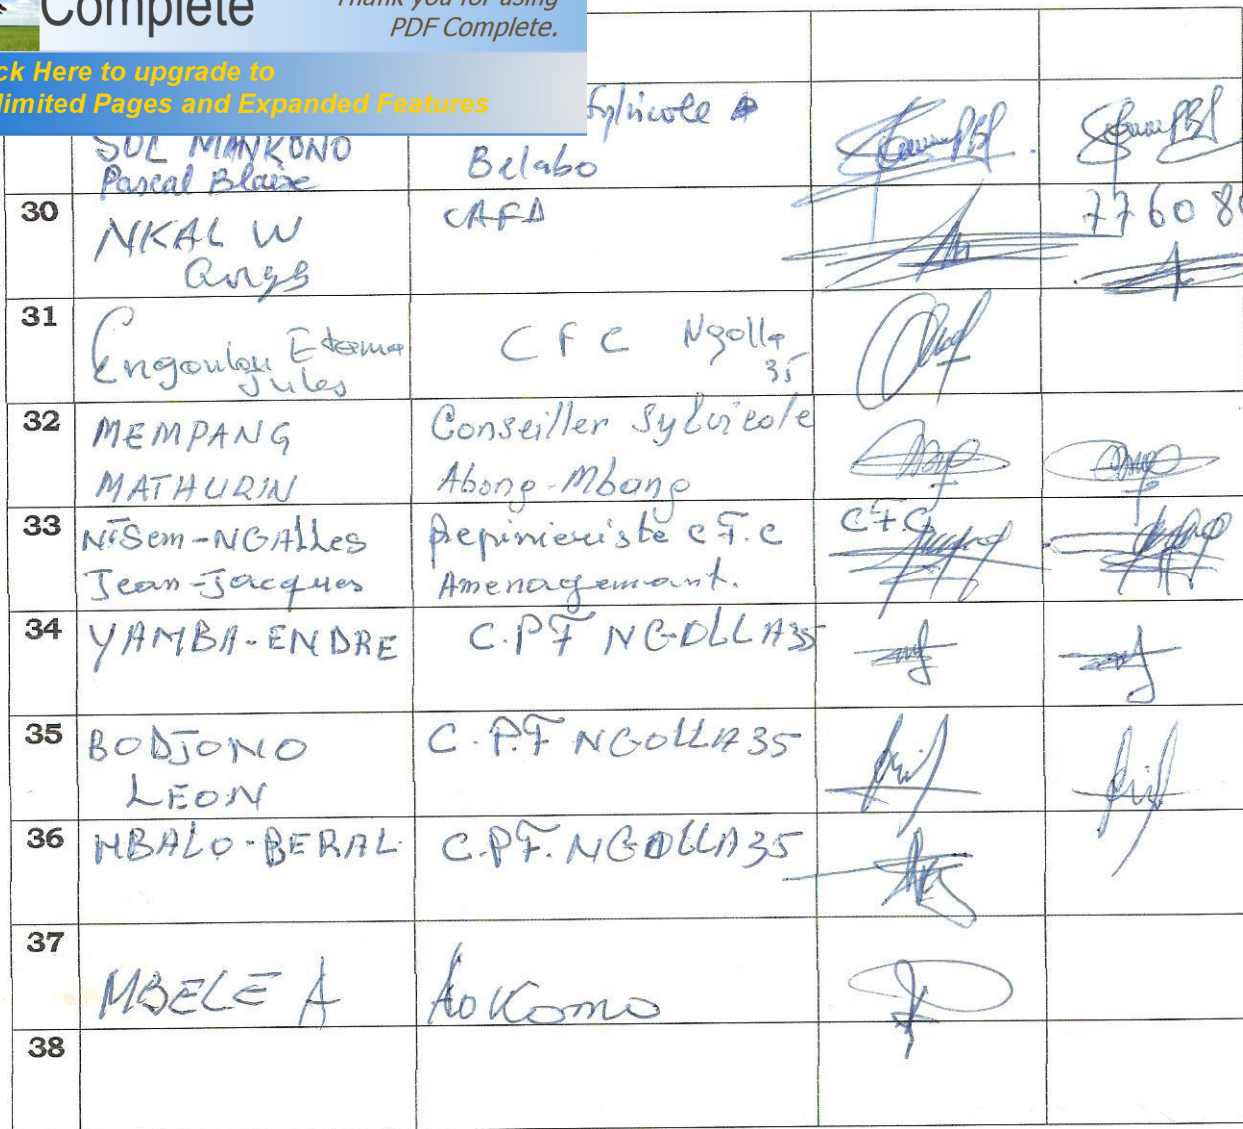 Complete
Thank you for using
PDF Complete.
ck Here to upgrade to
limited Pages and Expanded Features
Sylvicole
SOL MANKONO
Pascal Blaise
Belabo
30
NKAL W
CAFD
77608
31
Engoulou Etema
Jules
CFC Ngolla
35
32
MEMPANG
MATHURIN
Conseiller Sylvicole
Abong-Mbang
33
NTSem-NGALLes
Jean-Jacques
Pepinieriste C.F.C
Amenagement.
CFC
34
YAMBA-ENDRE
C.PF NGOLLA35
35
BODJONO
LEON
C.P.F NGOLLA35
36
MBALO-BERAL
C.PF. NGOLLA35
37
MBELE A
AoKomo
38